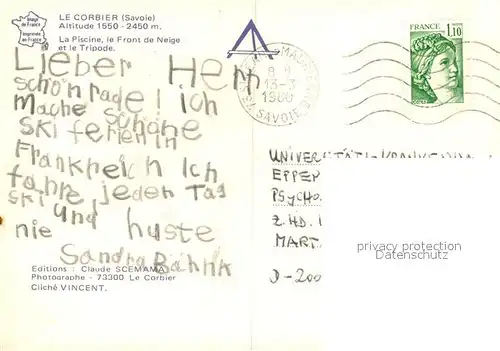 Image
de France
Imprimée
en France
LE CORBIER (Savoie)
Altitude 1550 - 2450 m.
La Piscine, le Front de Neige
et le Tripode.
FRANCE
1,10
13-3
1980
SAVOIE
Lieber Herr
schönrade! ich
Mache schöne
SKi ferien in
Frankreich Ich
fahre jeden Tag
ski und huste
nie
Sandra Bähnk
UNIVERSITÄTS-KRANKENHA
EPPEN
PSYCHO
Z.HD.
MART.
D-200
privacy protection
Datenschutz
Editions : Claude SCEMAMA
Photographe - 73300 Le Corbier
Cliché VINCENT.